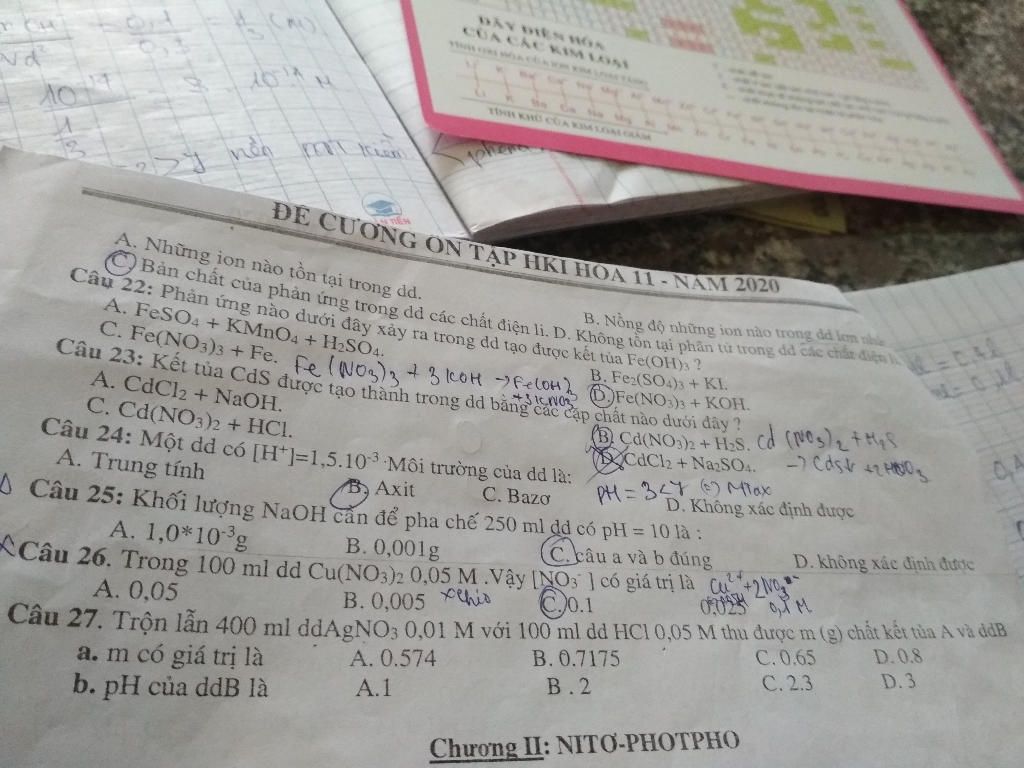 = 0,1 = 1/3 (M)
10⁻¹⁴
nên mt kiềm
DÃY ĐIỆN HÓA
CỦA CÁC KIM LOẠI
TÍNH OXI HÓA CỦA ION KIM LOẠI TĂNG
TÍNH KHỬ CỦA KIM LOẠI GIẢM
ĐỀ CƯƠNG ÔN TẬP HKI HÓA 11 - NĂM 2020
A. Những ion nào tồn tại trong dd. B. Nồng độ những ion nào trong dd lớn nhất
C. Bản chất của phản ứng trong dd các chất điện li. D. Không tồn tại phân tử trong dd các chất điện li
Câu 22: Phản ứng nào dưới đây xảy ra trong dd tạo được kết tủa Fe(OH)₃ ?
A. FeSO₄ + KMnO₄ + H₂SO₄. B. Fe₂(SO₄)₃ + KI.
C. Fe(NO₃)₃ + Fe. D. Fe(NO₃)₃ + KOH.
Fe(NO₃)₃ + 3KOH → Fe(OH)₃
+ 3KNO₃
Câu 23: Kết tủa CdS được tạo thành trong dd bằng các cặp chất nào dưới đây ?
A. CdCl₂ + NaOH. B. Cd(NO₃)₂ + H₂S. Cd(NO₃)₂ + H₂S
C. Cd(NO₃)₂ + HCl. D. CdCl₂ + Na₂SO₄. → CdS↓ + 2HNO₃
Câu 24: Một dd có [H⁺]=1,5.10⁻³ .Môi trường của dd là: PH = 3 < 7 (=) MTax
A. Trung tính B. Axit C. Bazơ D. Không xác định được
Câu 25: Khối lượng NaOH cần để pha chế 250 ml dd có pH = 10 là :
A. 1,0*10⁻³g B. 0,001g C. câu a và b đúng D. không xác định được
Câu 26. Trong 100 ml dd Cu(NO₃)₂ 0,05 M .Vậy [NO₃⁻] có giá trị là Cu²⁺ + 2NO₃⁻
A. 0,05 B. 0,005 C. 0.1 0,1 M
Câu 27. Trộn lẫn 400 ml ddAgNO₃ 0,01 M với 100 ml dd HCl 0,05 M thu được m (g) chất kết tủa A và ddB
a. m có giá trị là A. 0.574 B. 0.7175 C. 0.65 D. 0.8
b. pH của ddB là A.1 B . 2 C. 2.3 D. 3
Chương II: NITƠ-PHOTPHO